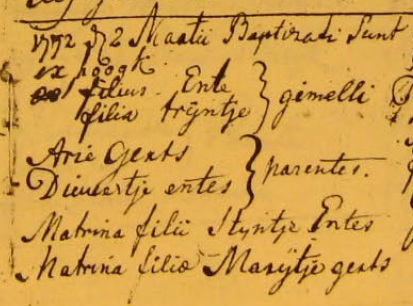 1772 d 2 Maatii Baptizati Sunt
ex
filius Ente
filia trijntje } gemelli
Arie Gerts
Dieuwertje entes } parentes.
Matrina filii Styntje Entes
Matrina filiæ Marijtje gerts